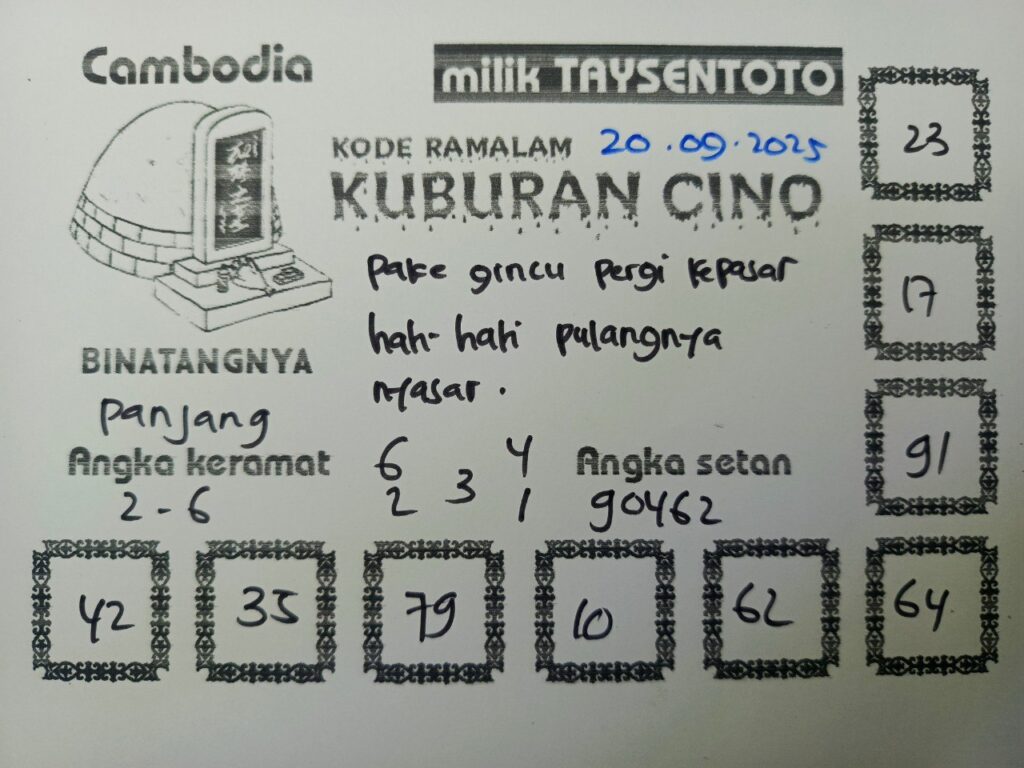 Cambodia
milik TAYSENTOTO
KODE RAMALAM 20.09.2025
KUBURAN CINO
pake gincu pergi kepasar
hati-hati pulangnya
nyasar.
BINATANGNYA
panjang
Angka keramat
2-6
6 4
3
2 1
Angka setan
90462
23
17
91
42 35 79 10 62 64